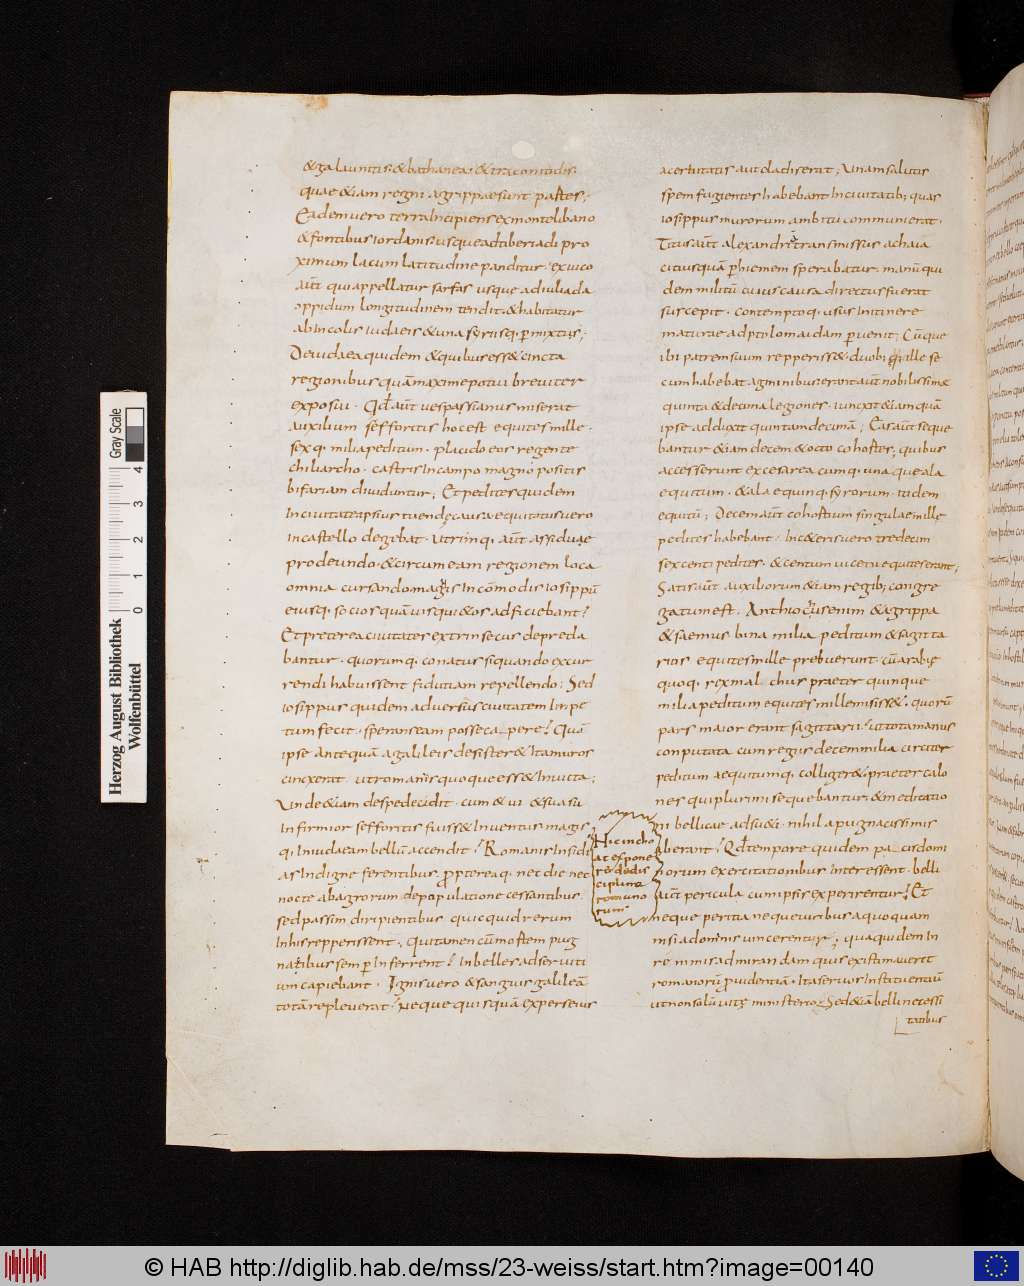 & galaunitis & bathanea & traconitidis
quae & iam regni agrippae sunt partes.
Ea dem uero terra incipiens ex monte libano
& fontibus iordanis usque ad tiberiadi pro
ximum lacum latitudine panditur. ex uico
aūt qui appellatur sarfas usque ad iuliada
oppidum longitudinem tendit. & habitatur
ab incolis iudaeis & una syrisq; permixtus;
De iudaea quidem & quibus ess& cincta
regionibus quā maxime potui breuiter
exposui. Qd aūt uespassianus miserat
auxilium sefforitis hoc est equites mille.
sexq; milia peditum. placido eos regente
chiliarcho. castris in campo magno positis
bifariam diuiduntur; Et pedites quidem
in ciuitate ipsius tuendę causa. equitatus uero
in castello degebat. utrinq; aūt assiduae
prodeundo. & circum eam regionem loca
omnia cursando magis incōmodis iosippū
eiusq; socios quāuis qui&os adficiebant.
Et preterea ciuitates extrinsecus depreda
bantur. quorumq; conatus siquando excur
rendi habuissent fidutiam repellendo. Sed
iosippus quidem aduersus ciuitatem impe
tum fecit. sperans eam posse capere. Quā
ipse antequā a galileis desister& ita muros
cinxerat. ut romanis quoque ess& inuicta;
Unde & iam de spe decidit. cum & ui & suasu
infirmior sefforitis fuiss& inuentus magis
q; in iudaeam bellū accendit. Romanis insidi
as indigne ferentibus. propterea q; nec die nec
nocte ab agrorum depopulatione cessantibus.
sed passim diripientibus. quicquid rerum
in his repperissent. qui tamen cūmortem pug
natibus semper inferrent. inbelles ad seruiti
um capiebant. Ignis uero & sanguis galileā
totā repleuerat. neque quisquā expers eius
acerbitatis aut cladis erat; Unam salutis
spem fugientes habebant in ciuitatib; quas
iosippus murorum ambitu communierat.
Titus aūt alexandriā transmissus achaia
citius quā per hiemem sperabatur. manū qui
dem militū cuius causa directus fuerat
suscepit. contemptoq; usus itinere
mature ad ptolomaidam peruenit; Cūque
ibi patrem suum repperiss&. duobusq; ille se
cum habebat agminibus erant aūt nobilissimę
quinta & decima legiones. iuncxit & iam quā
ipse adduxit quintamdecimā; Eas aūt seque
bantur & iam decem & octo cohortes; quibus
accesserunt ex cesarea cumq; una que ala
equitum. & ala equinq; syrorum. itidem
equitū; Decem aūt cohortium singulae mille
pedites habebant. In c&eris uero tredecim
sexcenti pedites. & centum uiceni equites erant;
Satis aūt auxiliorum & iam regib; congre
gatum est. Antiochus enim & agrippa
& saemus bina milia peditum & sagitta
rios equites mille prebuerunt. cū arabię
quoq; rex malchus praeter quinque
milia peditum equites mille misiss&. quorū
pars maior erant sagittarii. ut tota manus
computata cum regiis decem milia circiter
peditum aequitumq; colliger&. praeter calo
nes qui plurimi sequebantur. & meditatio
ni bellicae adsu&i. nihil a pugnacissimis
aberant. Qd tempore quidem pacis domi
norum exercitationibus interessent. belli
aūt pericula cum ipsis experirentur. Et
neque peritia neque uiribus a quoquam
nisi a dominis uincerentur; quaquidem in
re minis admirandam quis existimauerit
romanorū prudentiā. ita seruos instituentiū
ut non solū uitę ministerio. Sed & iā belli necessi
tatibus
Hic incho
at expone
re de dis
ciplina
romano
rum
Gray Scale
0 1 2 3 4
Herzog August Bibliothek
Wolfenbüttel
© HAB http://diglib.hab.de/mss/23-weiss/start.htm?image=00140